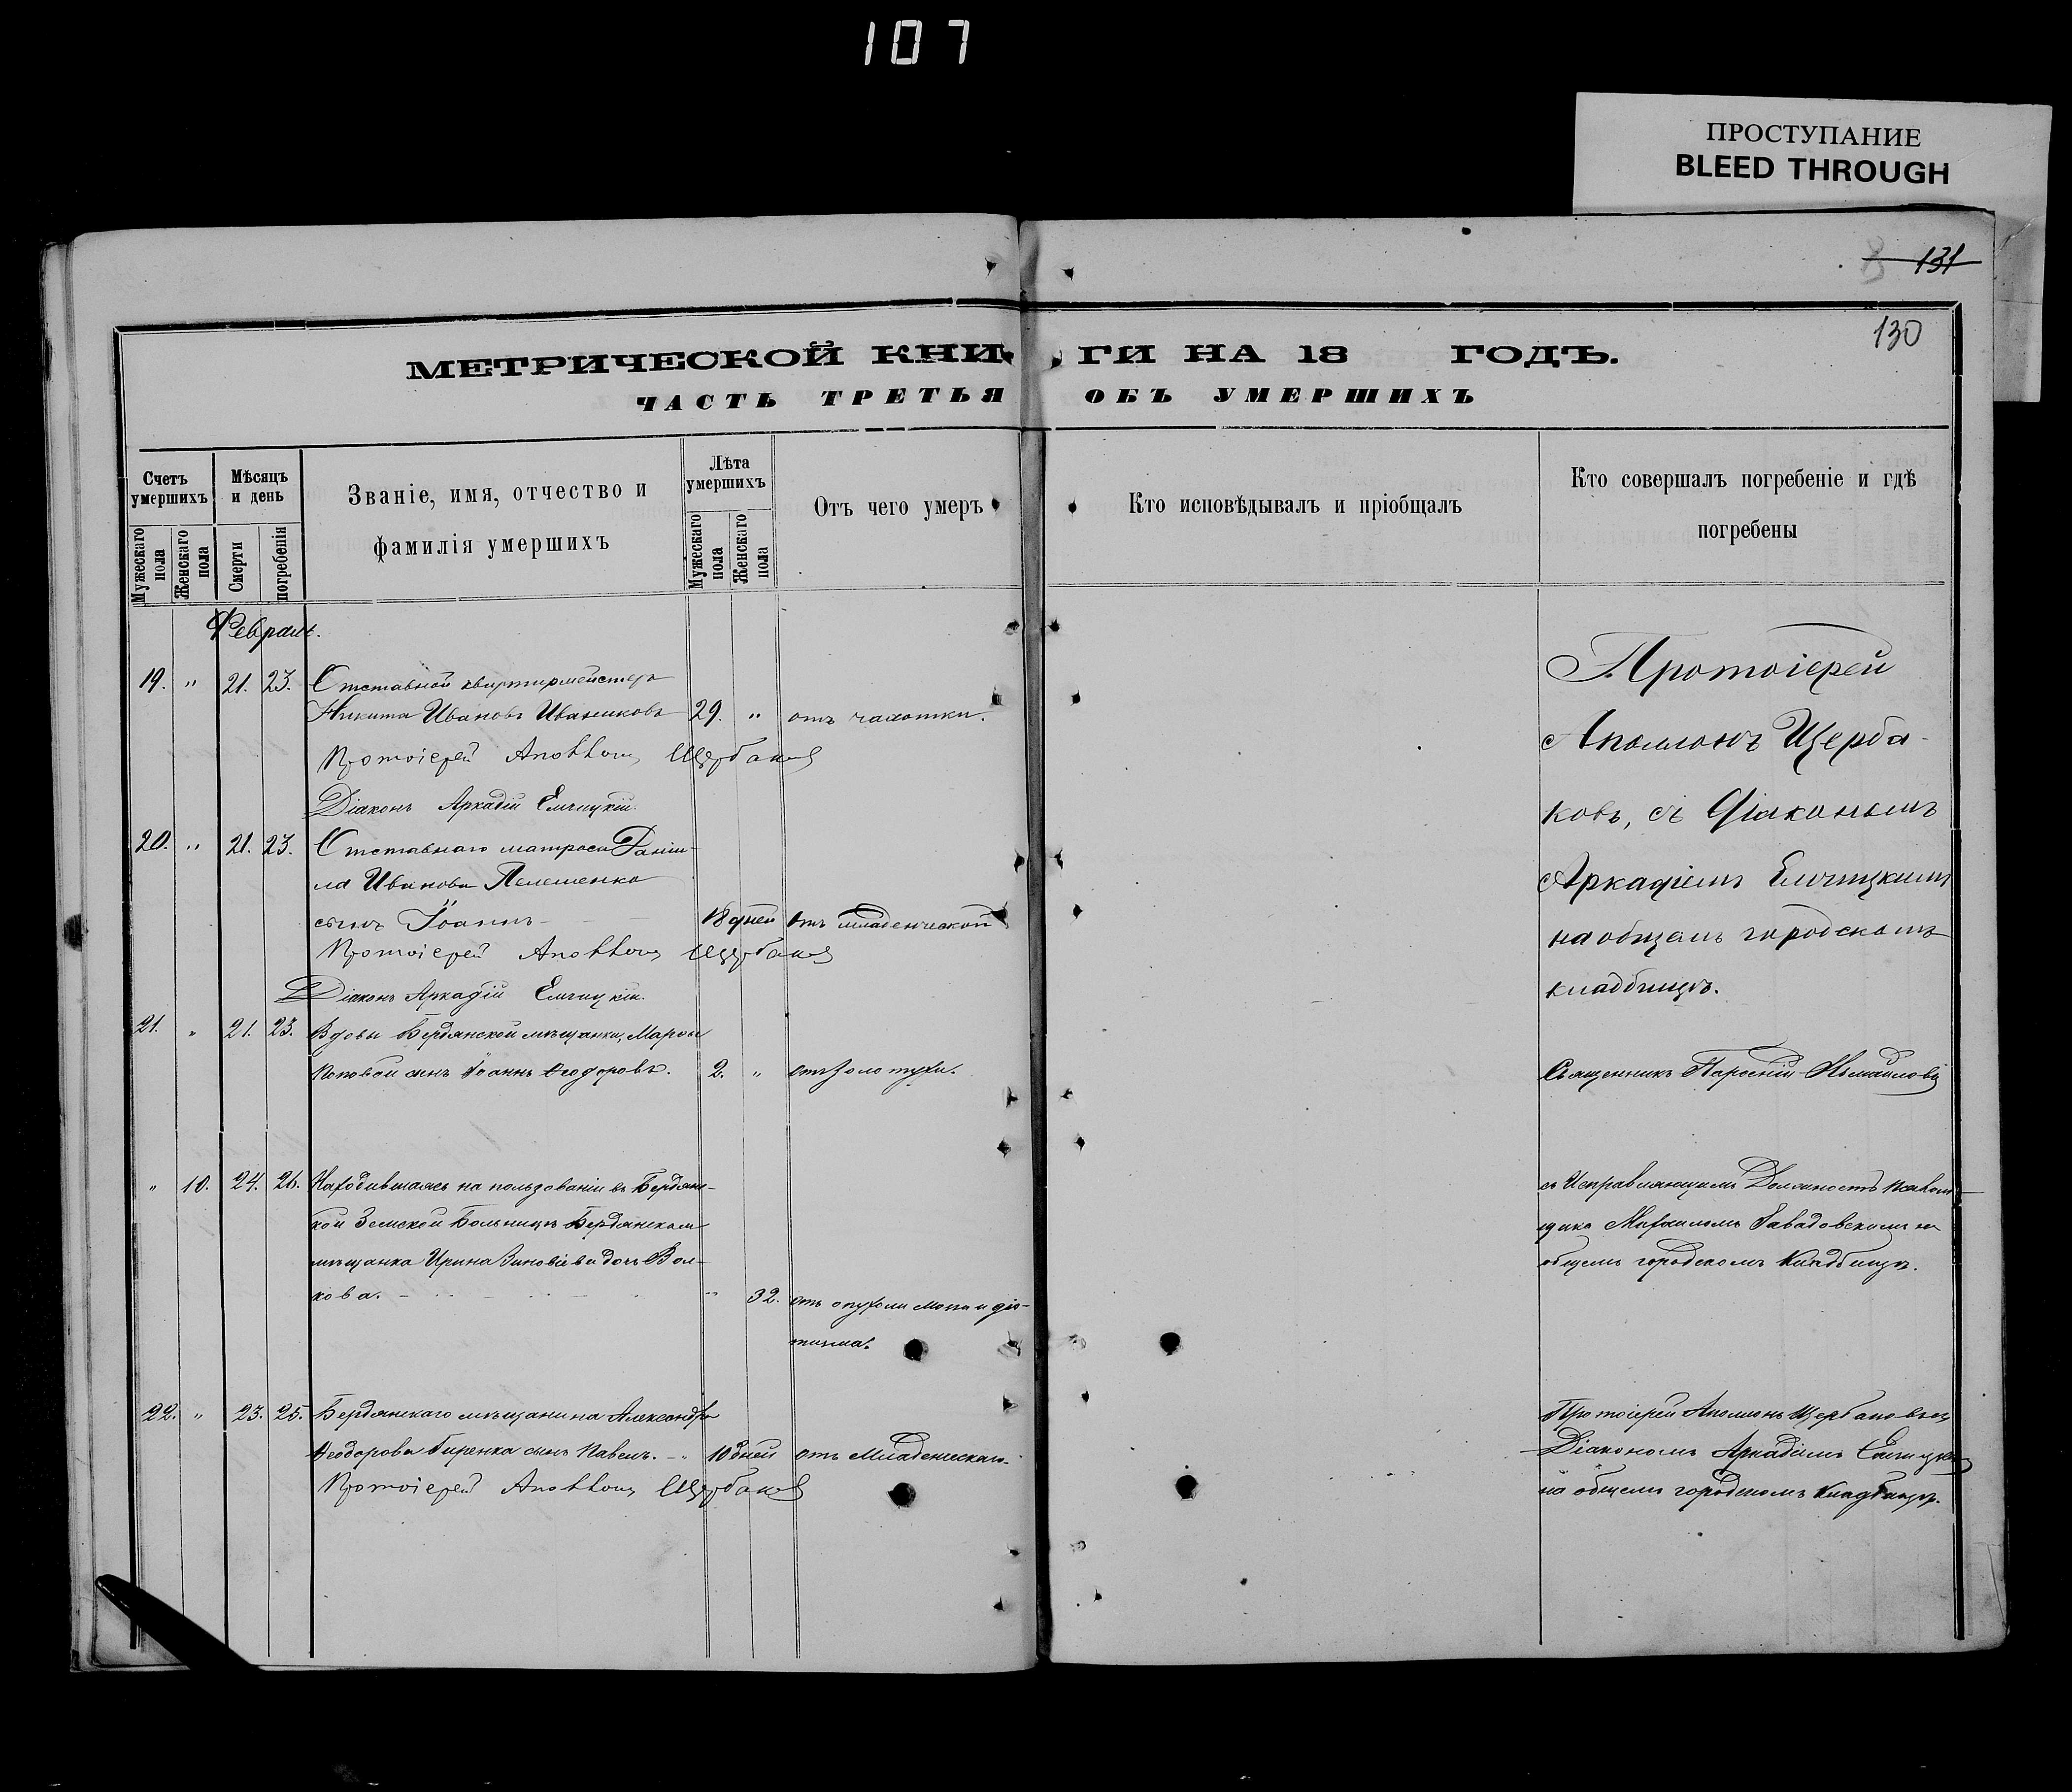 107
ПРОСТУПАНИЕ
BLEED THROUGH
131
130
МЕТРИЧЕСКОЙ КНИГИ НА 18 ГОДЪ.
ЧАСТЬ ТРЕТЬЯ ОБЪ УМЕРШИХЪ
Счетъ умершихъ
Мужескаго пола
Женскаго пола
Мѣсяцъ и день
Смерти
погребенія
Званіе, имя, отчество и
фамилія умершихъ
Лѣта умершихъ
Мужескаго пола
Женскаго пола
Отъ чего умеръ
Кто исповѣдывалъ и пріобщалъ
Кто совершалъ погребеніе и гдѣ
погребены
Февраль.
19. " 21. 23. Отставной квартирмейстеръ
Никита Ивановъ Иваниковъ 29. " отъ чахотки.
Протоіерей Аполлонъ Щербаковъ
Діаконъ Аркадій Елчицкій.
Протоіерей
Аполлонъ Щерба-
ковъ, съ Діакономъ
Аркадіемъ Елчицкимъ
на общемъ городскомъ
кладбищѣ.
20. " 21. 23. Отставнаго матроса Даніи-
ла Иванова Пелешенко
сынъ Іоаннъ 18 дней отъ младенческой
Протоіерей Аполлонъ Щербаковъ
Діаконъ Аркадій Елчицкій.
21. " 21. 23. Вдовы Бердянской мѣщанки, Марѳы
Поповой сынъ Іоаннъ Ѳеодоровъ. 2. " отъ золотухи.
Священникъ Парѳеній
" 10. 24. 26. Находившаяся на пользованіи въ Бердянс-
кой Земской Больницѣ Бердянская
мѣщанка Ирина Зиновіева дочь Вол-
кова. " 32. отъ опухоли
съ Исправляющимъ Должность псалом-
щика Михаиломъ Завадовскимъ на
общемъ городскомъ Кладбищѣ.
22. " 23. 25. Бердянскаго мѣщанина Александра
Ѳеодорова Гиренка сынъ Павелъ. 10 дней отъ Младенческаго.
Протоіерей Аполлонъ Щербаковъ
Протоіерей Аполлонъ Щербаковъ съ
Діакономъ Аркадіемъ Елчицкимъ
на общемъ городскомъ Кладбищѣ.